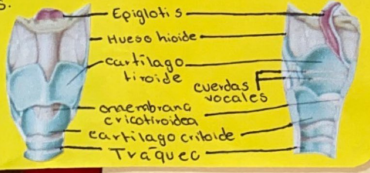 s.
Epiglotis
Hueso hioide
cartilago
tiroide
cuerdas
vocales
membrana
cricotiroidea
cartilago criboide
Traquea